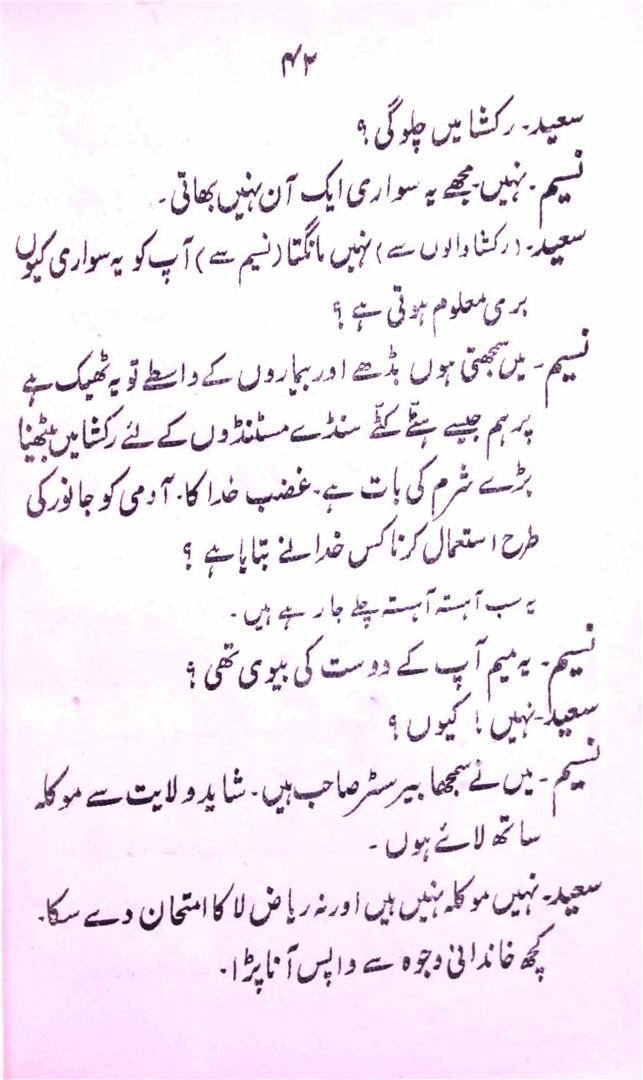 ۴۲
سعید۔ رکشا میں چلو گی؟
نسیم۔ نہیں۔ مجھے یہ سواری ایک آن نہیں بھاتی۔
سعید۔ (رکشا والوں سے) نہیں مانگتا (نسیم سے) آپ کو یہ سواری کیوں
بری معلوم ہوتی ہے؟
نسیم۔ میں سمجھتی ہوں بڈھے اور بیماروں کے واسطے تو یہ ٹھیک ہے
پر ہم جیسے ہٹّے کٹّے سنڈے مسٹنڈوں کے لئے رکشا میں بیٹھنا
بڑے شرم کی بات ہے۔ غضب خدا کا۔ آدمی کو جانور کی
طرح استعمال کرنا کس خدا نے بتایا ہے؟
یہ سب آہستہ آہستہ چلے جا رہے ہیں۔
نسیم۔ یہ میم آپ کے دوست کی بیوی تھی؟
سعید۔ نہیں! کیوں؟
نسیم۔ میں نے سمجھا بیرسٹر صاحب ہیں۔ شاید ولایت سے موکلہ
ساتھ لائے ہوں۔
سعید۔ نہیں موکلہ نہیں ہیں اور نہ ریاض لا کا امتحان دے سکا۔
کچھ خاندانی وجوہ سے واپس آنا پڑا۔